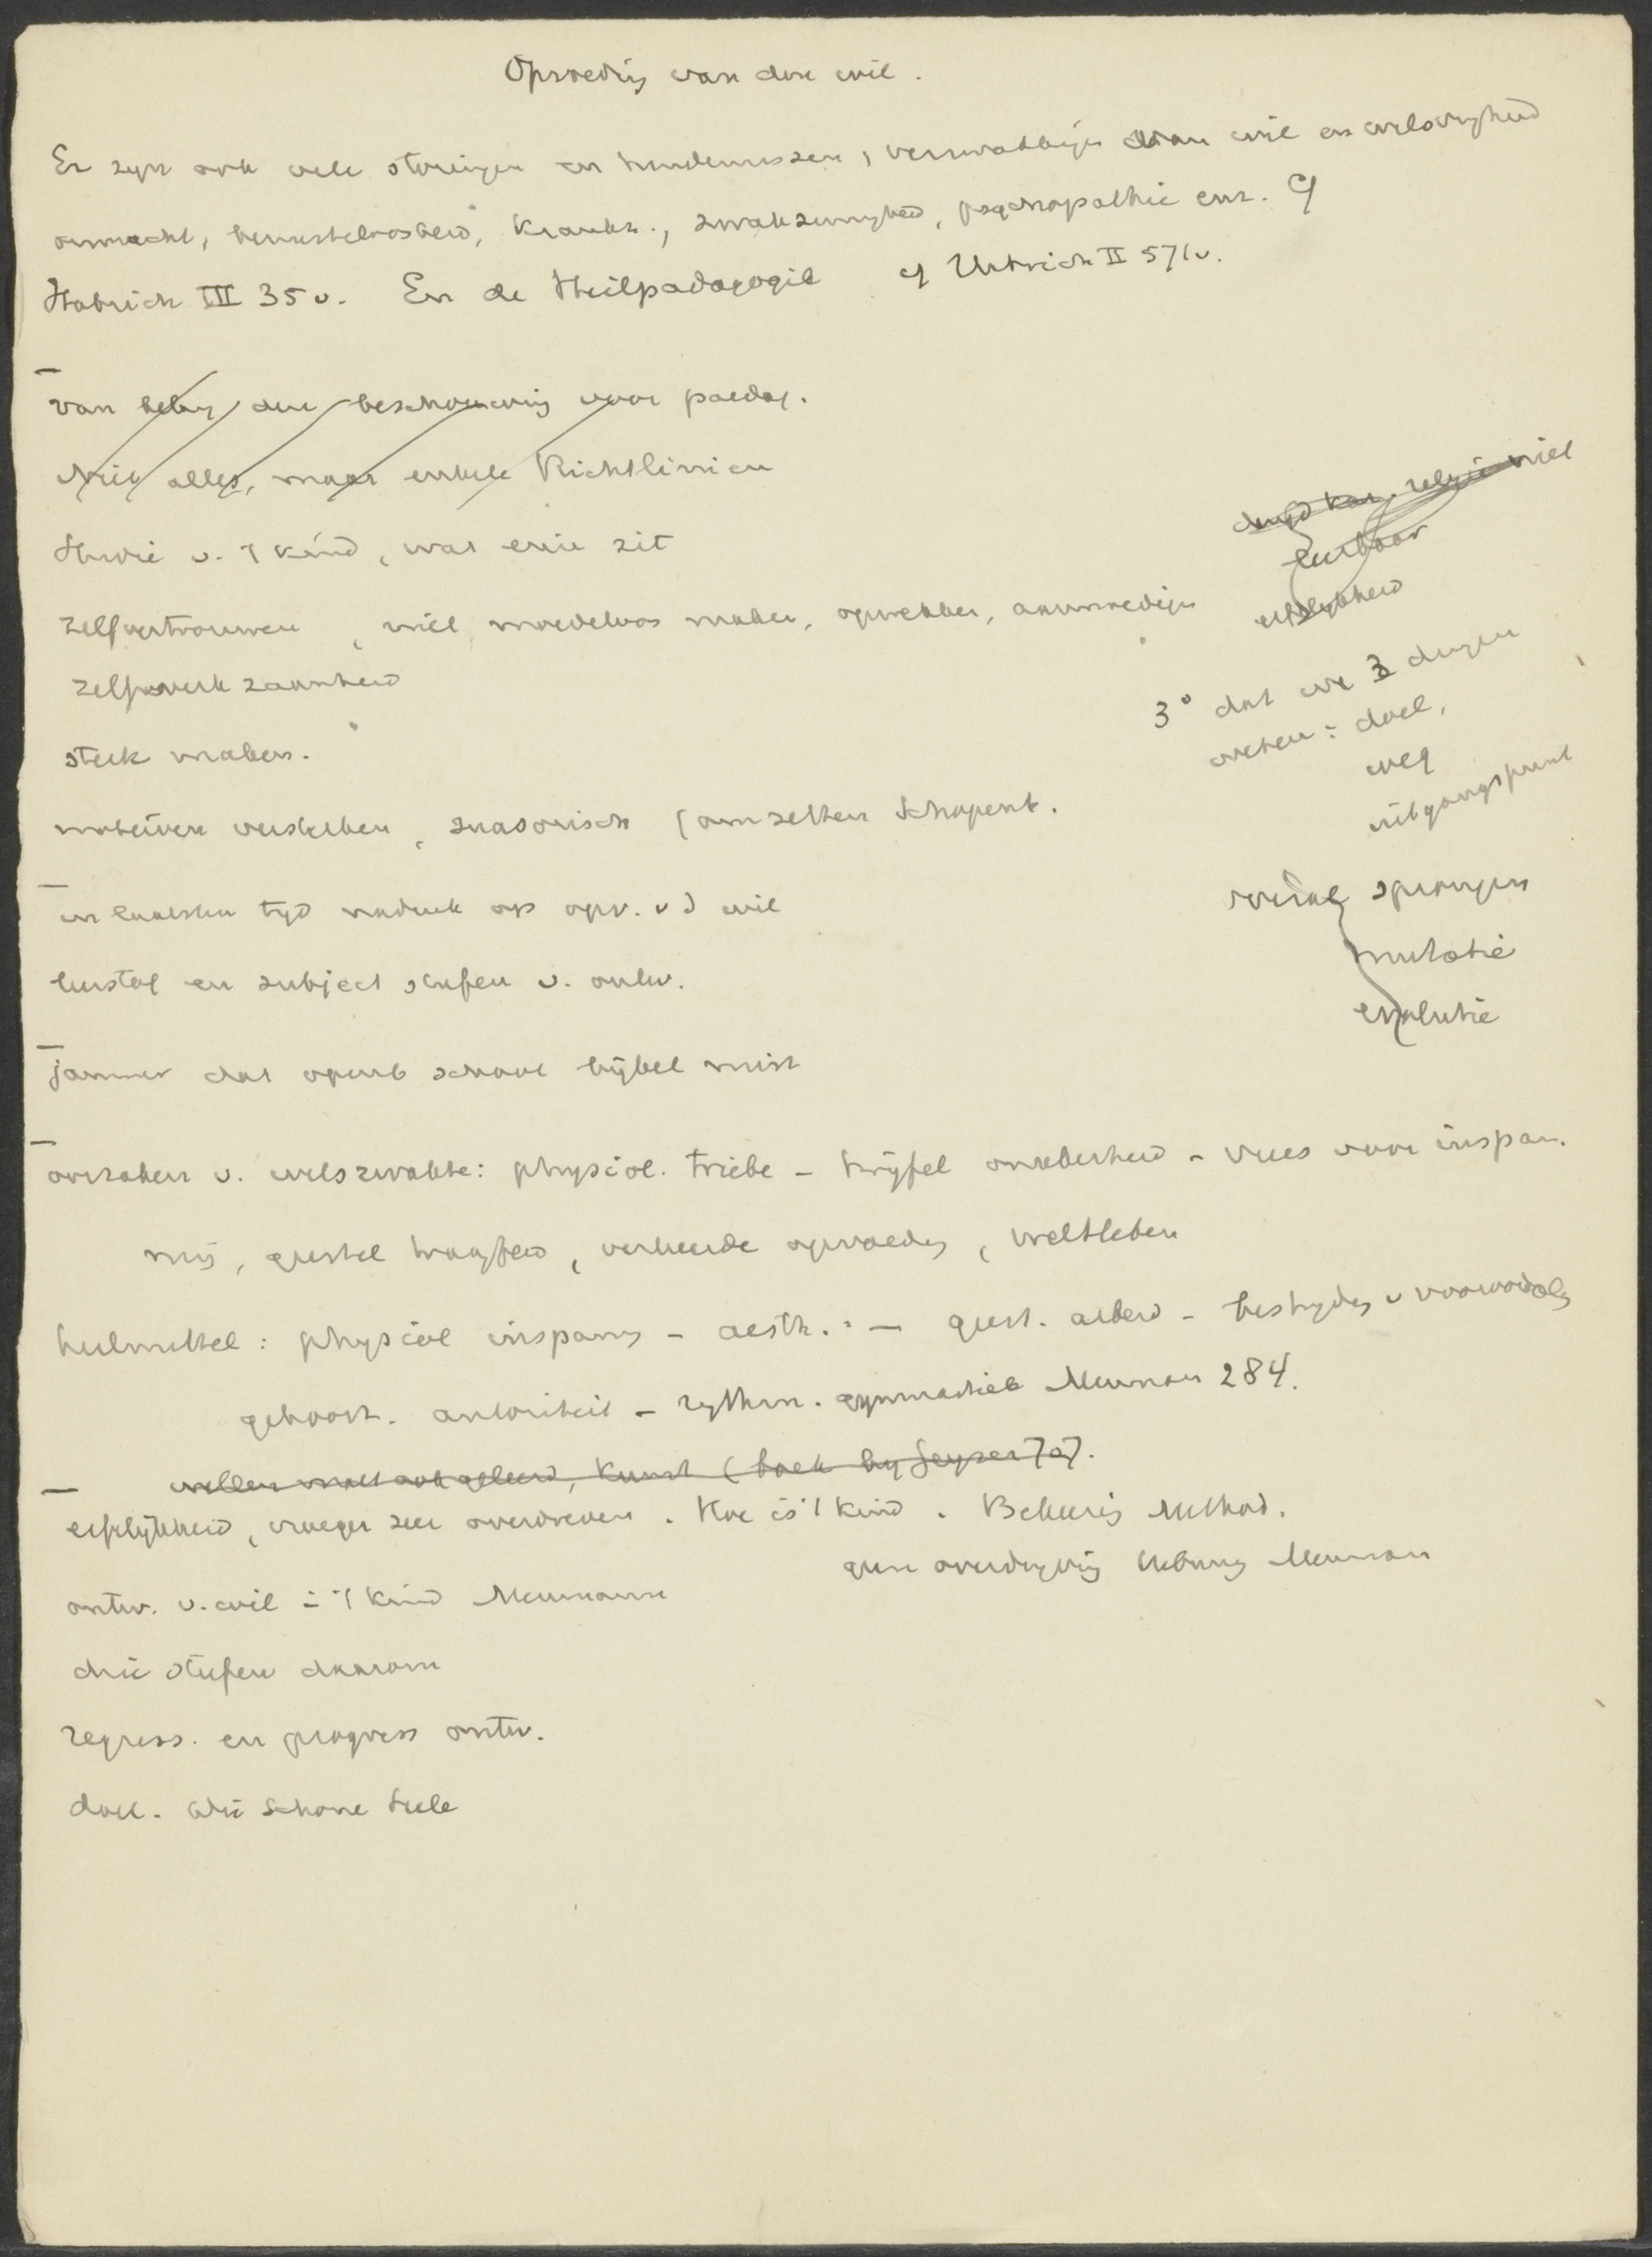 Opvoeding van den wil.
Er zyn ook vele storingen en hindernissen, verzwakkingen van wil en wilsvryheid
onmacht, bewusteloosheid, Krankz., zwakzinnigheid, psychopathie enz. Cf
Habrich III 35 v. En de Heilpadagogik cf Habrich II 571 v.
van belang deze beschouwing voor paedag.
Niet alles, maar enkele Richtlinien
Theorie v. 't kind, wat er in zit
zelfvertrouwen, niet moedeloos maken, opwekken, aanmoedigen
zelfwerkzaamheid
sterk maken.
motieven versterken, suasorisch (omzetten Schopenh.
in laatsten tyd nadruk op opv. v d wil
lustog en subject stufen v. ontw.
jammer dat openb school bijbel mist
oorzaken v. wilszwakte: physiol. Triebe – twijfel onzekerheid – vrees voor inspan.
ning, geestel traagheid, verkeerde opvoeding, weltleben
hulmittel: physiol inspanng – aesth. " – geest. arbeid – bestryding v vooroordeelg
gehoorz. autoriteit – rythm. gymnastiek Meuman 284.
willen moet ook geleerd, Kunst (boek by Geyser 707.
erflijkheid, vroeger zeer overdreven. Hoe is 't kind. Bekeering Method.
geen overdryving Uebung Meuman
ontw. v. wil in 't Kind Meumann
drie Stufen daarom
regress. en progress ontw.
doel. Die Schone Seele
deugd kan, religie niet
leerbaar
erflijkheid
3° dat we 3 dingen
weten: doel,
weg
uitgangspunt
overal sprongen
mutatie
evolutie